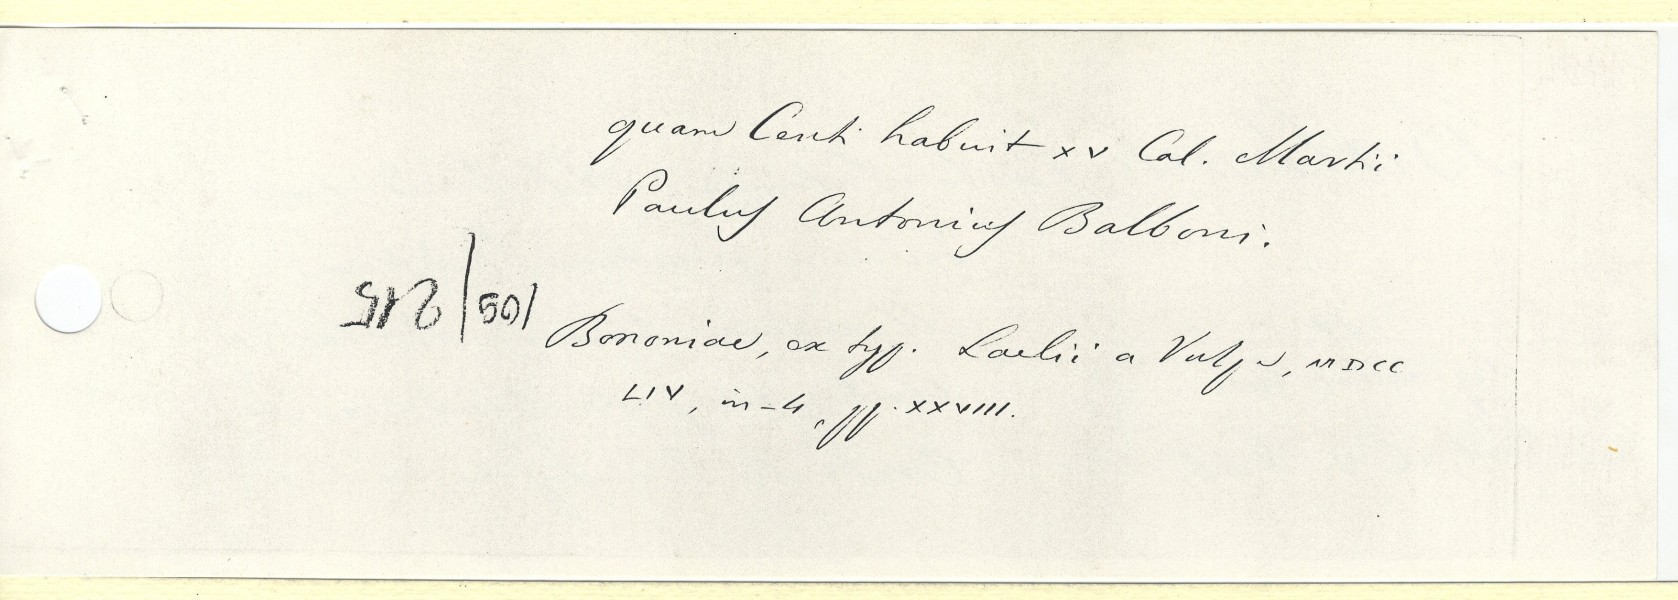 quam Centi habuit xv Cal. Martii
Paulus Antonius Balboni.
Bononiae, ex typ. Laelii a Vulpe, MDCC
LIV, in-4, pp. XXVIII.